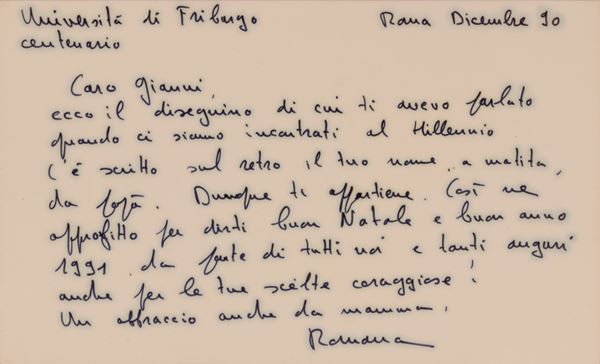 Università di Friburgo
centenario
Roma Dicembre 90
Caro Gianni,
ecco il diseguino di cui ti avevo parlato
quando ci siamo incontrati al Millennio
C'è scritto sul retro il tuo nome, a matita,
da papà. Dunque ti appartiene. Così ne
approfitto per dirti buon Natale e buon anno
1991 da parte di tutti noi e tanti auguri
anche per le tue scelte coraggiose!
Un abbraccio anche da mamma.
Romana